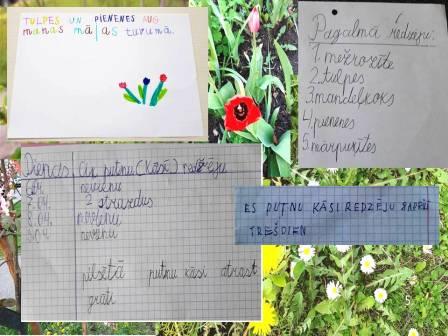 TULPES UN PIENENES AUG
manas mājas tuvumā.
Pagalmā redzēju:
1. mežrozīte
2. tulpes
3. mandeļkoks
4. pienenes
5. mārpuķītes
Diena Cik putnu (kāsi) redzēju
6.04. nevienu
7.04. 2 strazdus
8.04. nevienu
9.04. nevienu
pilsētā putnu kāsi atrast
grūti
ES PUTNU KĀSI REDZĒJU 8 APRĪLĪ
TREŠDIEN